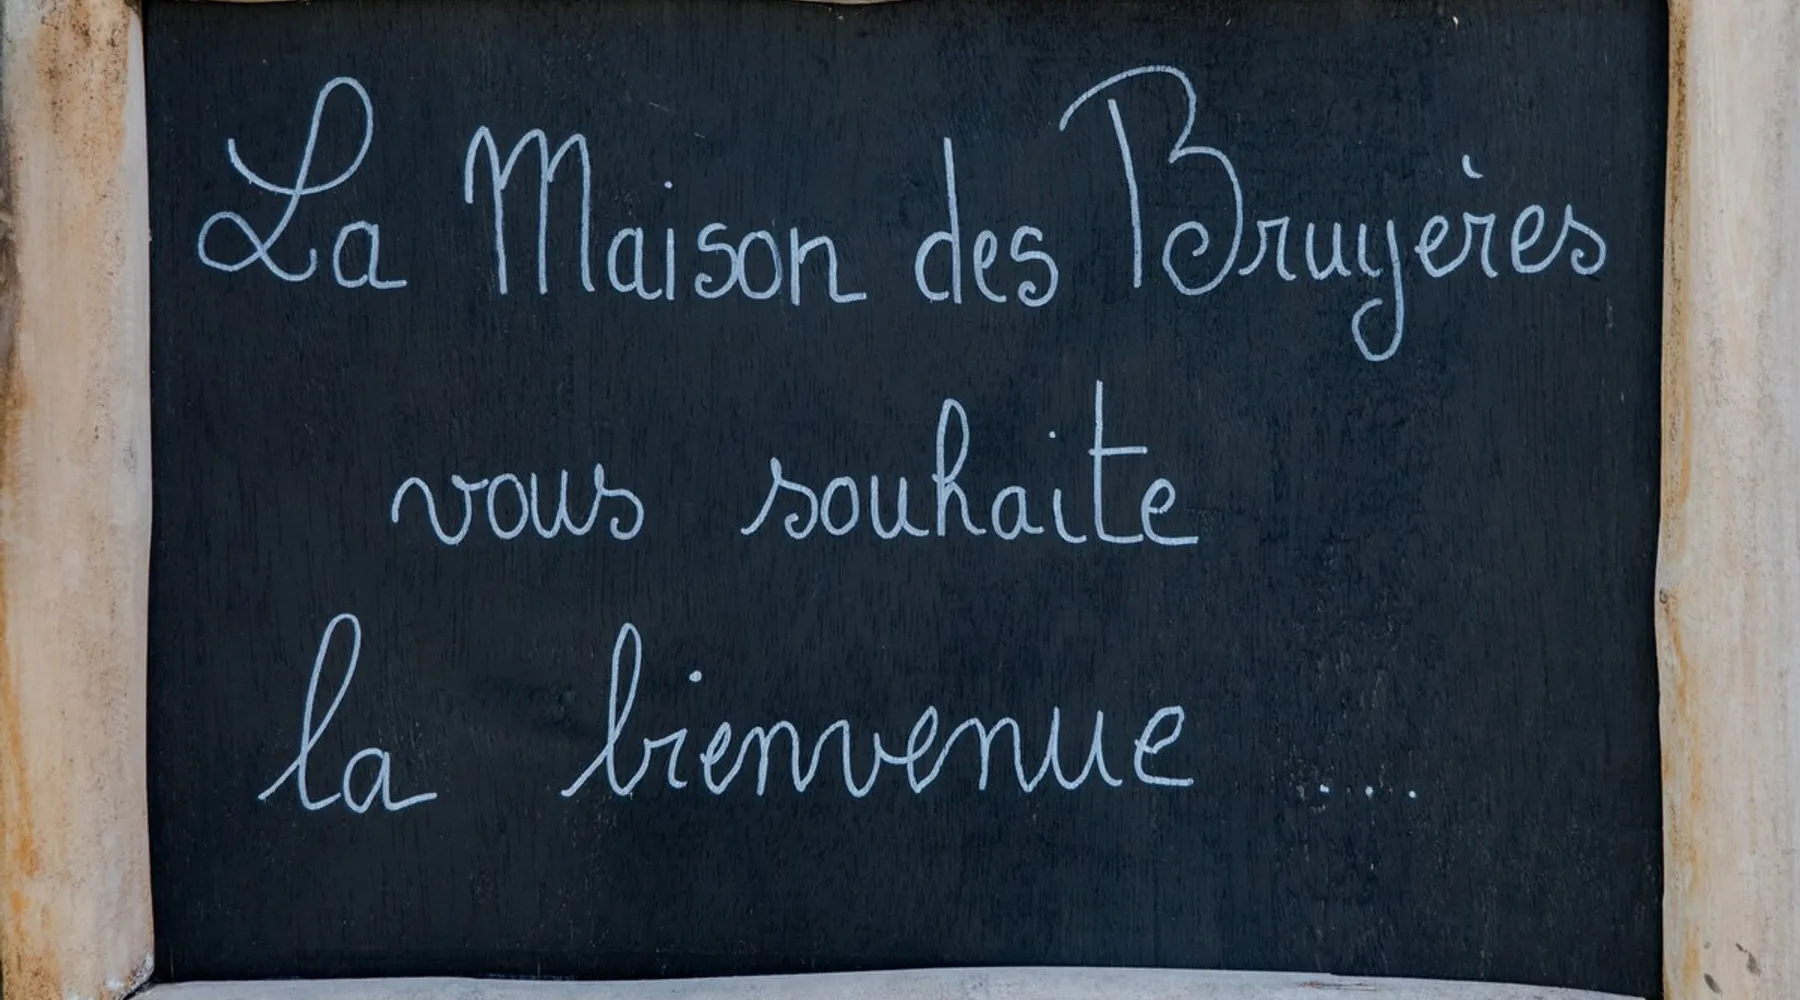 La Maison des Bruyères
vous souhaite
la bienvenue ...